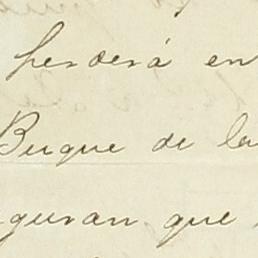 perderá en
Buque de la
guran que